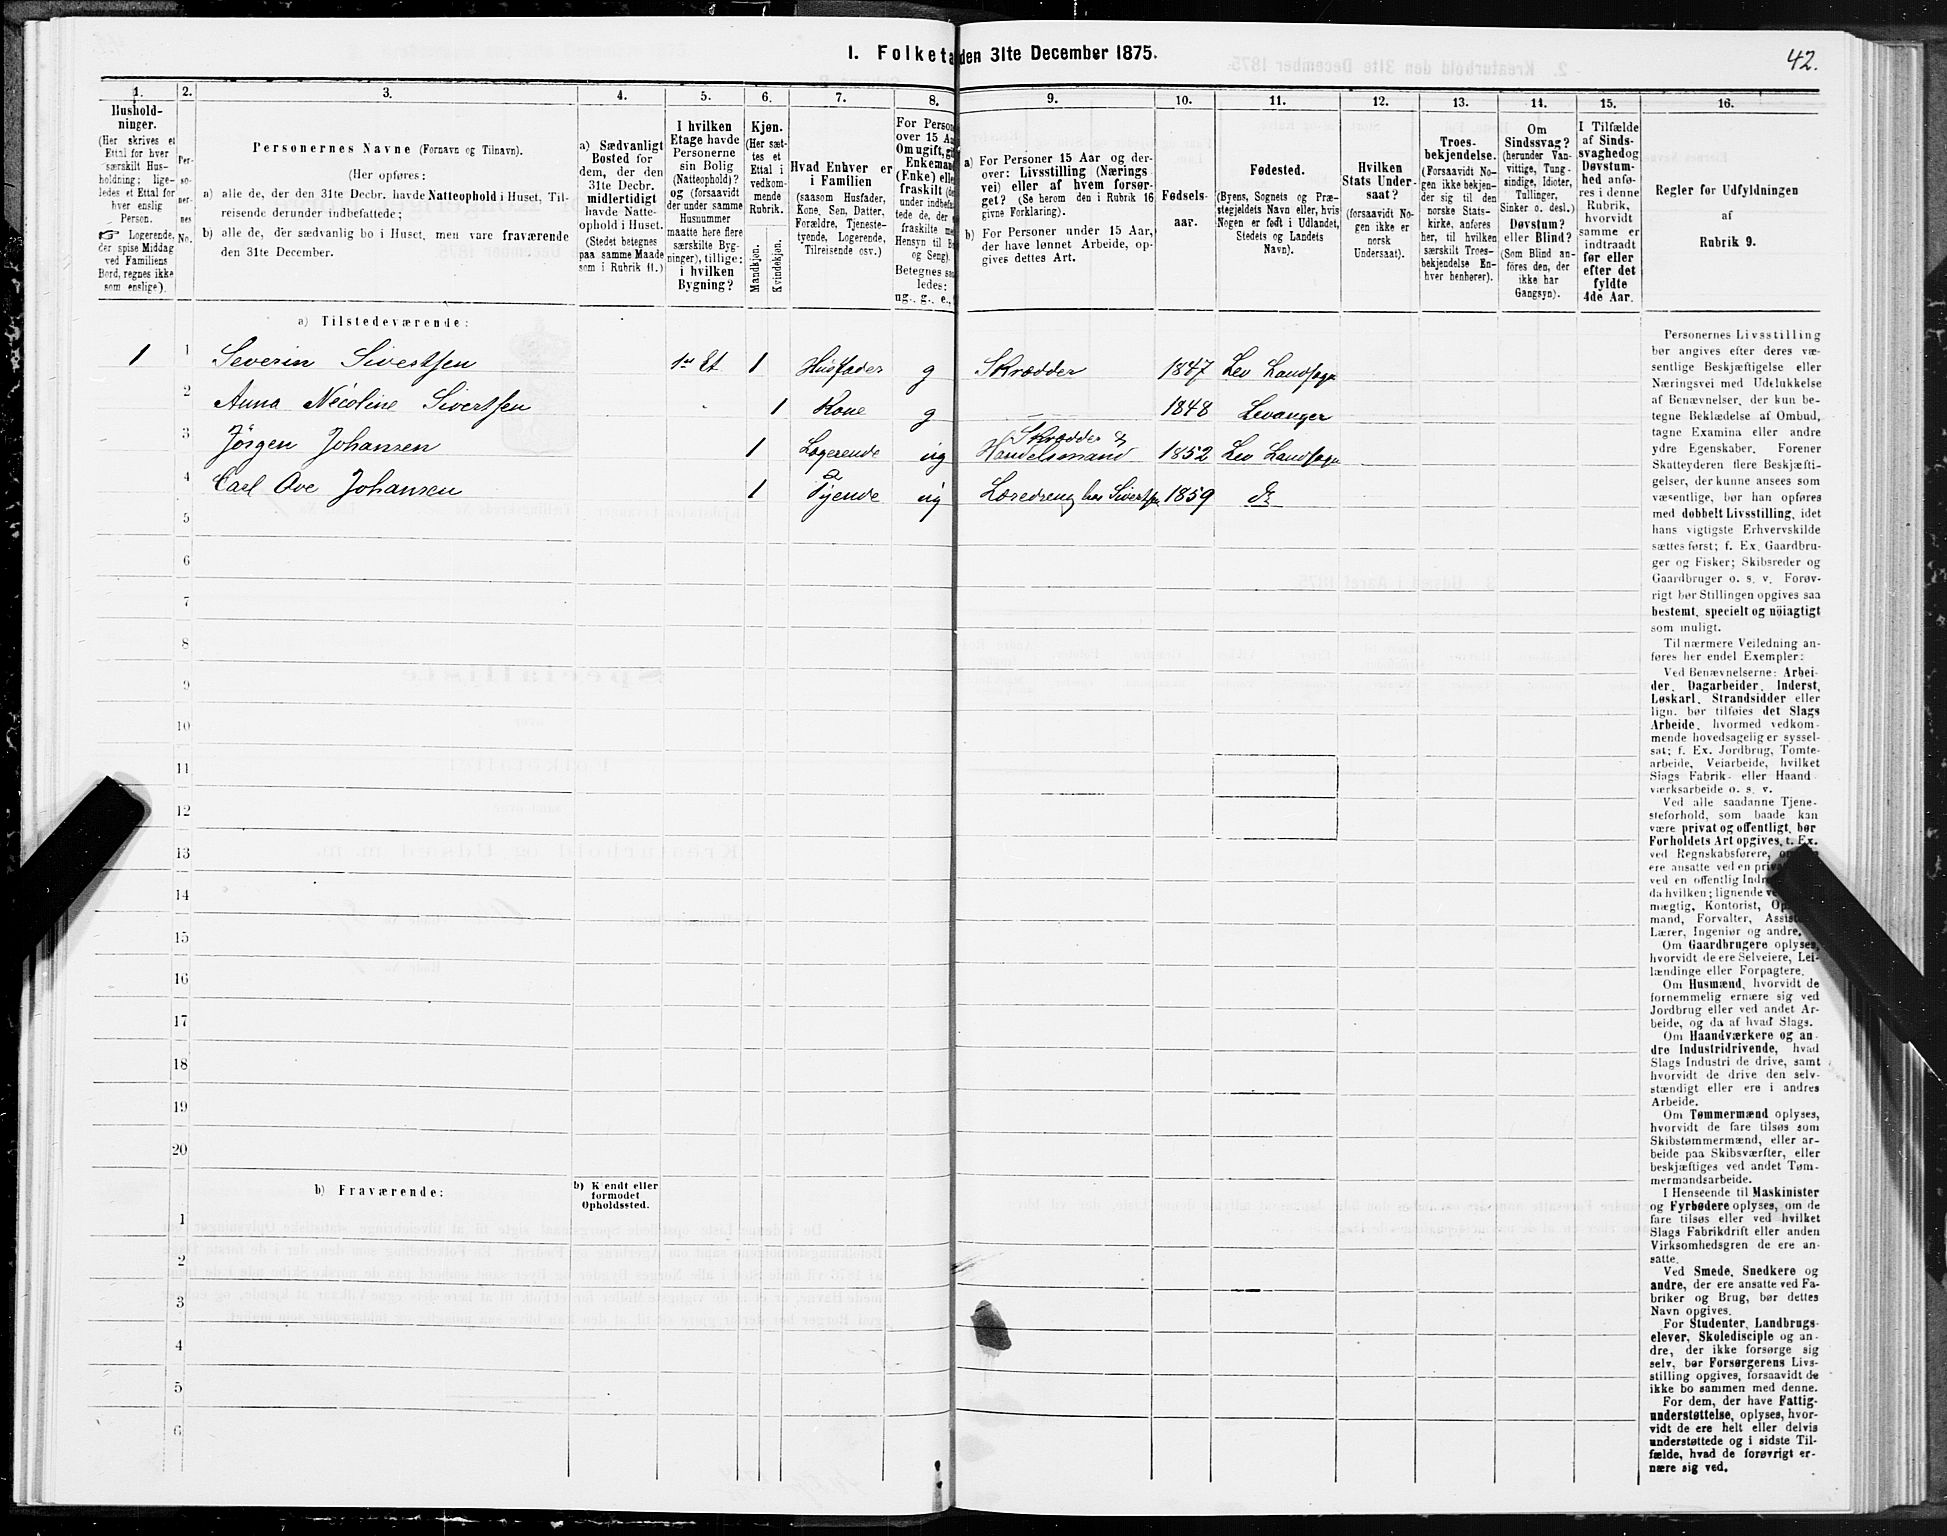 42.
1. Folketa den 31te December 1875.
1. 2. 3. 4. 5. 6. 7. 8. 9. 10. 11. 12. 13. 14. 15. 16.
Hushold-
ninger.
(Her skrives et
Ettal for hver
særskilt Hus-
holdning; lige-
ledes et Ettal for
hver enslig
Person.
☞ Logerende,
der spise Middag
ved Familiens
Bord, regnes ikke
som enslige).
Per-
so-
ner-
nes
No.
Personernes Navne (Fornavn og Tilnavn).
(Her opføres:
a) alle de, der den 31te Decbr. havde Natteophold i Huset, Til-
reisende derunder indbefattede;
b) alle de, der sædvanlig bo i Huset, men vare fraværende
den 31te December.
a) Sædvanligt
Bosted for
dem, der den
31te Decbr.
midlertidigt
havde Natte-
ophold i Huset.
(Stedet betegnes
paa samme Maade
som i Rubrik 11.)
I hvilken
Etage havde
Personerne
sin Bolig
(Natteophold)?
og (forsaavidt
der under samme
Husnummer
maatte høre flere
særskilte Byg-
ninger), tillige:
i hvilken
Bygning?
Kjøn.
(Her sæt-
tes et
Ettal i
vedkom-
mende
Rubrik.
Mandkjøn.
Kvindekjøn.
Hvad Enhver er
i Familien
(saasom Husfader,
Kone, Søn, Datter,
Forældre, Tjeneste-
tyende, Logerende,
Tilreisende osv.)
For Person
over 15 Aa
Om ugift, gi
Enkemand
(Enke) elle
fraskilt (de
under indbefat
tede de, der
fraskilte me
Hensyn til B
og Seng).
Betegnes saa
ledes:
ug., g., e.,
a) For Personer 15 Aar og der-
over: Livsstilling (Nærings
vei) eller af hvem forsør-
get? (Se herom den i Rubrik 16
givne Forklaring).
b) For Personer under 15 Aar,
der have lønnet Arbeide, op-
gives dettes Art.
Fødsels-
aar.
Fødested.
(Byens, Sognets og Præ-
stegjeldets Navn eller, hvis
Nogen er født i Udlandet,
Stedets og Landets
Navn).
Hvilken
Stats Under-
saat?
(forsaavidt No-
gen ikke er
norsk
Undersaat).
Troes-
bekjendelse.
(Forsaavidt No-
gen ikke bekjen-
der sig til den
norske Stats-
kirke, anføres
her, til hvilken
særskilt Troes-
bekjendelse En-
hver henhører).
Om
Sindssvag?
(herunder Van-
vittige, Tung-
sindige, Idioter,
Tullinger,
Sinker o. desl.)
Døvstum?
eller Blind?
(Som Blind an-
føres den, der
ikke har
Gangsyn).
I Tilfælde
af Sinds-
svaghed og
Døvstum-
hed anfø-
res i denne
Rubrik,
hvorvidt
samme er
indtraadt
før eller
efter det
fyldte
4de Aar.
Regler for Udfyldningen
af
Rubrik 9.
a) Tilstedeværende:
1 1 Severin Sivertsen 1ste Et 1 Husfader g Skrædder 1847 Lev Landsogn
2 Anna Nicoline Sivertsen 1 Kone g 1848 Levanger
3 Jörgen Johansen 1 Logerende ug Skrædder & Handelsmand 1852 Lev Landsogn
4 Carl Ove Johansen 1 Tjende ug Læredreng hos Sivertsen 1859 do
5
6
7
8
9
10
11
12
13
14
15
16
17
18
19
20
b) Fraværende:
b) Kjendt eller
formodet
Opholdssted.
1
2
3
4
5
6
Personernes Livsstilling
bør angives efter deres væ-
sentlige Beskjæftigelse eller
Næringsvei med Udelukkelse
af Benævnelser, der kun be-
tegne Beklædelse af Ombud,
tagne Examina eller andre
ydre Egenskaber. Forener
Skatteyderen flere Beskjæfti-
gelser, der kunne ansees som
væsentlige, bør han opføres
med dobbelt Livsstilling, idet
hans vigtigste Erhvervskilde
sættes først; f. Ex. Gaardbru-
ger og Fisker; Skibsreder og
Gaardbruger o. s. v. Forøv-
rigt bør Stillingen opgives saa
bestemt, specielt og nöiagtigt
som muligt.
Til nærmere Veiledning an-
føres her endel Exempler:
Ved Benævnelserne: Arbei-
der, Dagarbeider, Inderst,
Løskarl, Strandsidder eller
lign. bør tilføies det Slags
Arbeide, hvormed vedkom-
mende hovedsagelig er syssel-
sat; f. Ex. Jordbrug, Tomte-
arbeide, Veiarbeide, hvilket
Slags Fabrik- eller Haand
værksarbeide o. s. v.
Ved alle saadanne Tjene-
steforhold, som baade kan
være privat og offentligt, bør
Forholdets Art opgives, t. Ex.
ved Regnskabsførere,
ere ansatte ved en
ved en offentlig
da hvilken; lignende
mægtig, Kontorist,
mand, Forvalter,
Lærer, Ingeniør og andre.
Om Gaardbrugere oplyses,
hvorvidt de ere Selveiere, Lei-
lændinge eller Forpagtere.
Om Husmænd, hvorvidt de
fornemmelig ernære sig ved
Jordbrug eller ved andet Ar-
beide, og da af hvad Slags.
Om Haandværkere og an-
dre Industridrivende, hvad
Slags Industri de drive, samt
hvorvidt de drive den selv-
stændigt eller ere i andres
Arbeide.
Om Tømmermænd oplyses,
hvorvidt de fare tilsøs som
Skibstømmermænd, eller ar-
beide paa Skibsværfter, eller
beskjæftiges ved andet Tøm-
mermandsarbeide.
I Henseende til Maskinister
og Fyrbødere oplyses, om de
fare tilsøs eller ved hvilket
Slags Fabrikdrift eller anden
Virksomhedsgren de ere an-
satte.
Ved Smede, Snedkere og
andre, der ere ansatte ved Fa-
briker og Brug, bør dettes
Navn opgives.
For Studenter, Landbrugs-
elever, Skoledisciple og an-
dre, der ikke forsørge sig
selv, bør Forsørgerens Livs-
stilling opgives, forsaavidt de
ikke bo sammen med denne.
For dem, der have Fattig-
understøttelse, oplyses, hvor-
vidt de ere helt eller delvis
understøttede og i sidste Til-
fælde, hvad de forøvrigt er-
nære sig ved.